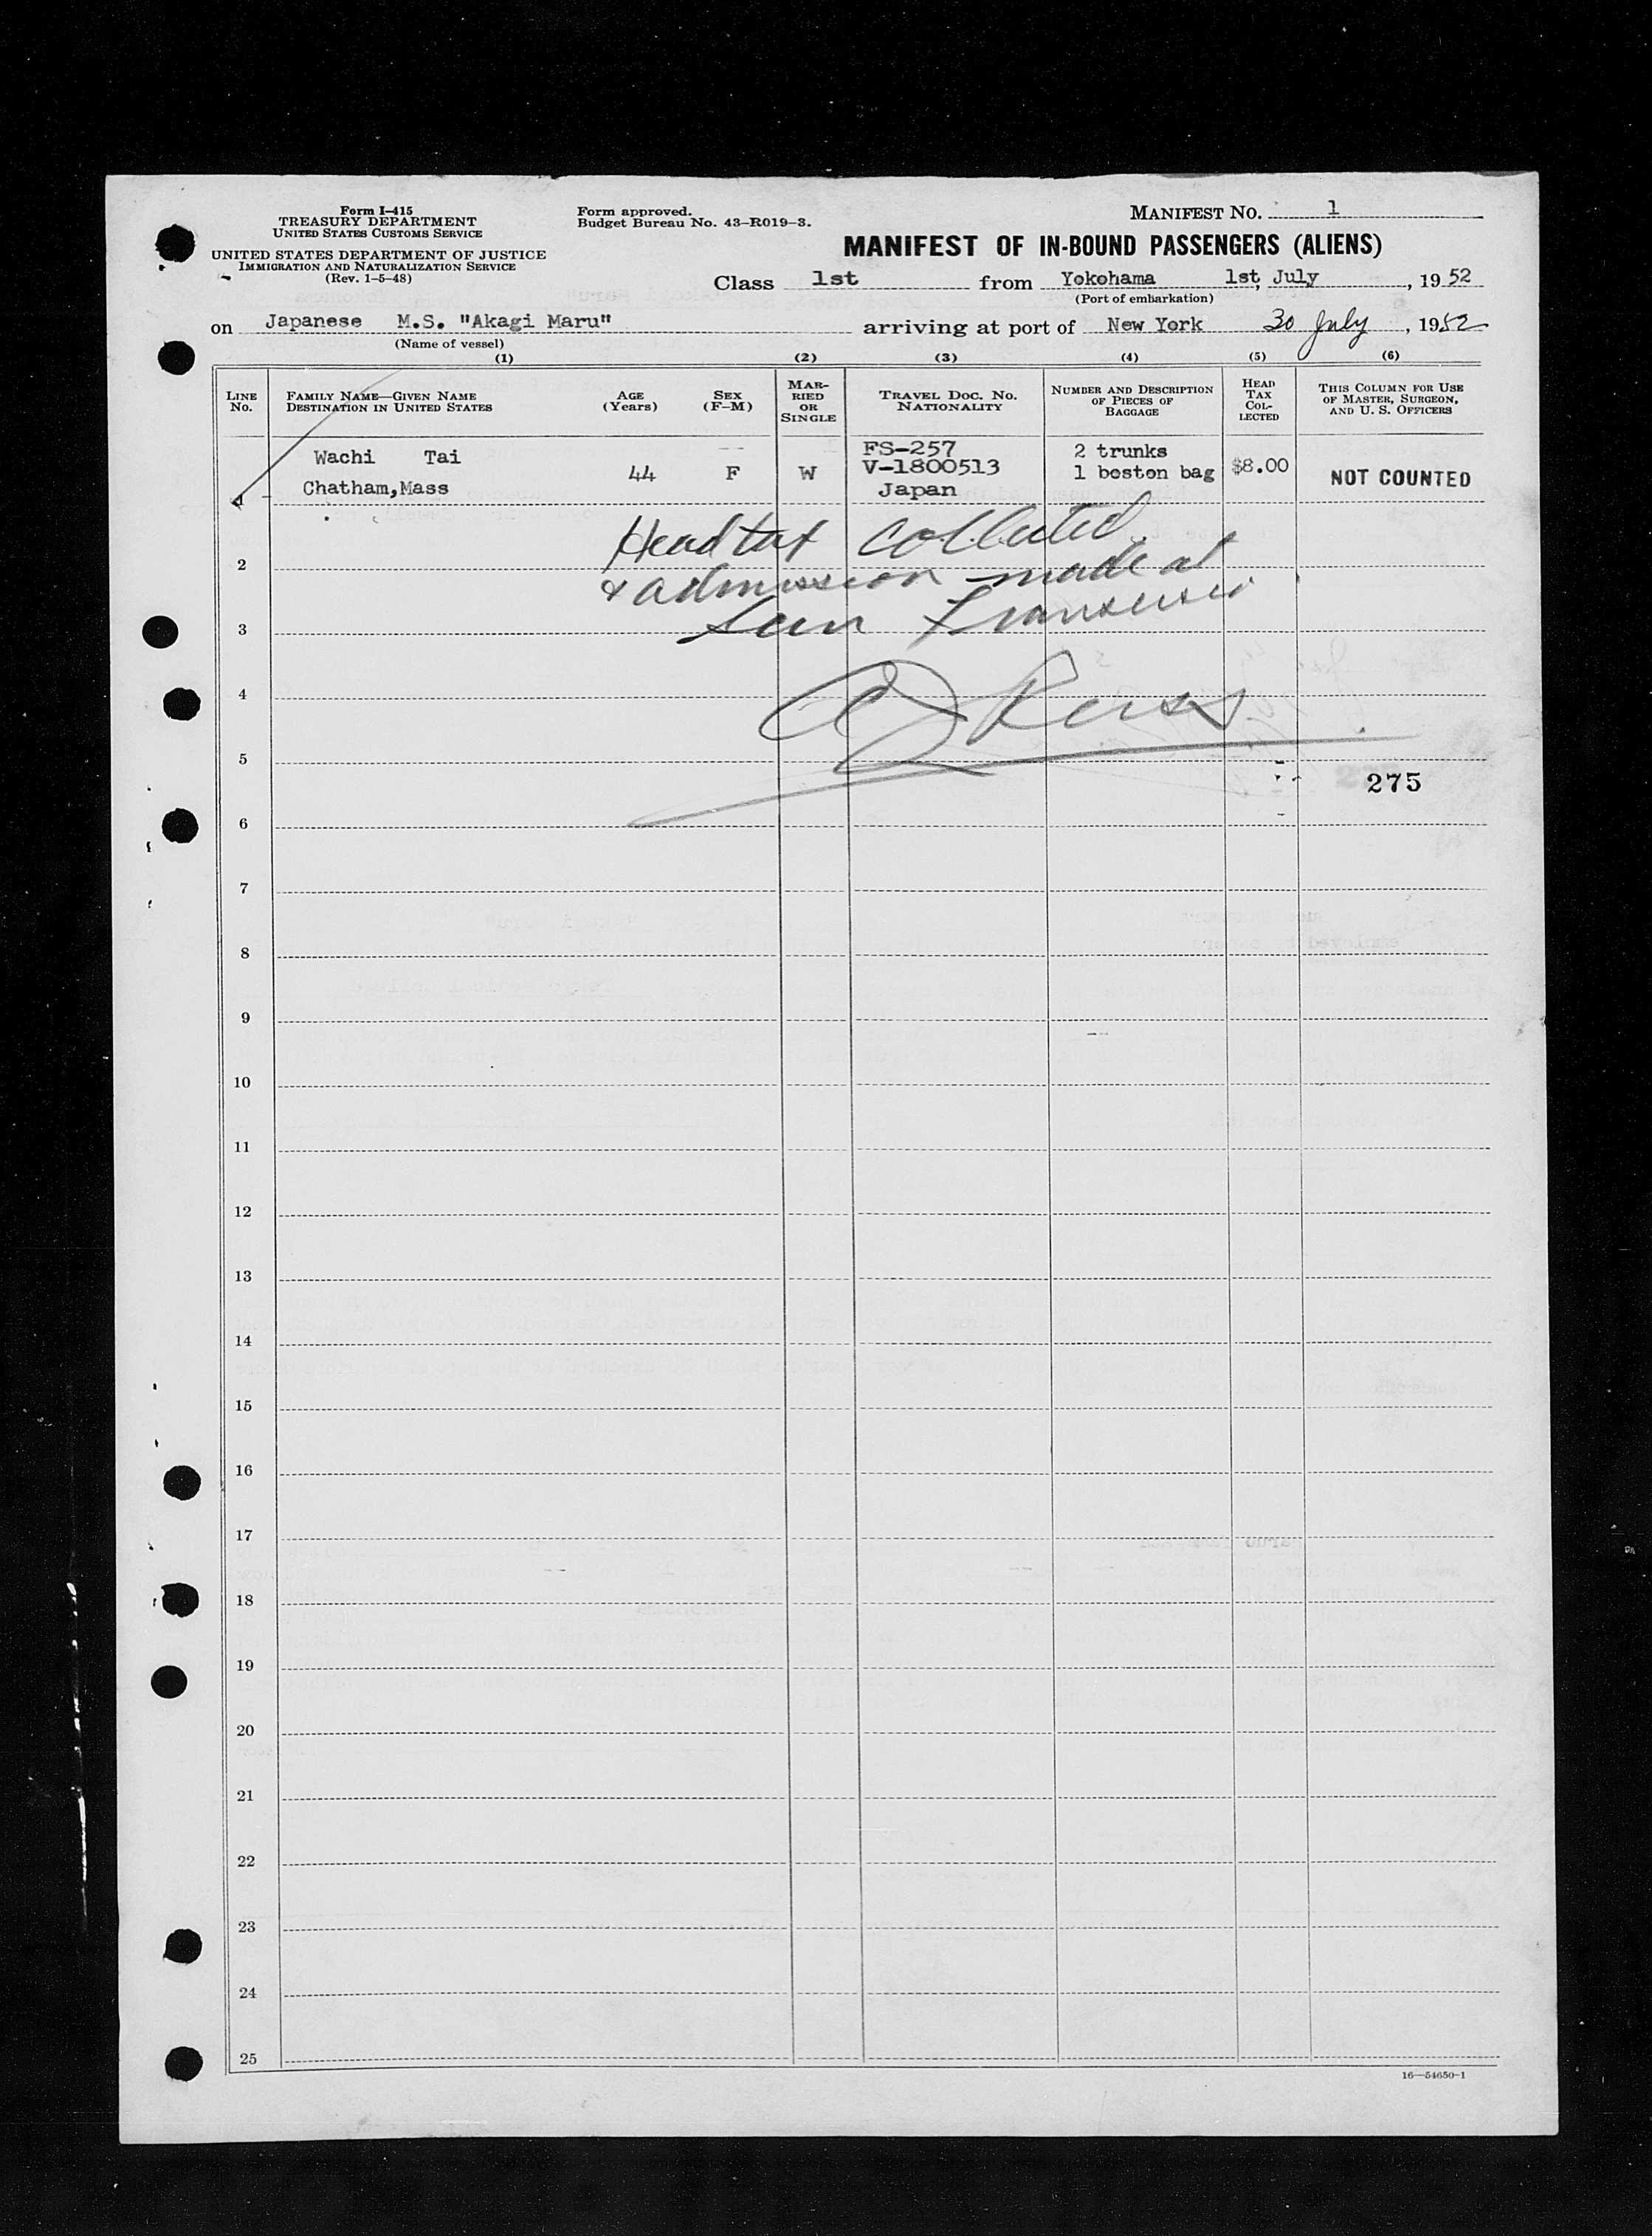 Form I-415
TREASURY DEPARTMENT
UNITED STATES CUSTOMS SERVICE
UNITED STATES DEPARTMENT OF JUSTICE
IMMIGRATION AND NATURALIZATION SERVICE
(Rev. 1-5-48)
Form approved.
Budget Bureau No. 43-R019-3.
MANIFEST NO. 1
MANIFEST OF IN-BOUND PASSENGERS (ALIENS)
Class 1st from Yokohama 1st, July, 1952
(Port of embarkation)
on Japanese M.S. "Akagi Maru" arriving at port of New York 30 July, 1952
(Name of vessel)
(1) (2) (3) (4) (5) (6)
LINE No.
FAMILY NAME—GIVEN NAME
DESTINATION IN UNITED STATES
AGE (Years)
SEX (F-M)
MARRIED OR SINGLE
TRAVEL DOC. NO. NATIONALITY
NUMBER AND DESCRIPTION OF PIECES OF BAGGAGE
HEAD TAX COLLECTED
THIS COLUMN FOR USE OF MASTER, SURGEON, AND U. S. OFFICERS
1
Wachi Tai
Chatham,Mass
44
F
W
FS-257
V-1800513
Japan
2 trunks
1 boston bag
$8.00
NOT COUNTED
Head tax collected
& admission made at
San Fransisco
2
3
4
5
275
6
7
8
9
10
11
12
13
14
15
16
17
18
19
20
21
22
23
24
25
16—54650-1